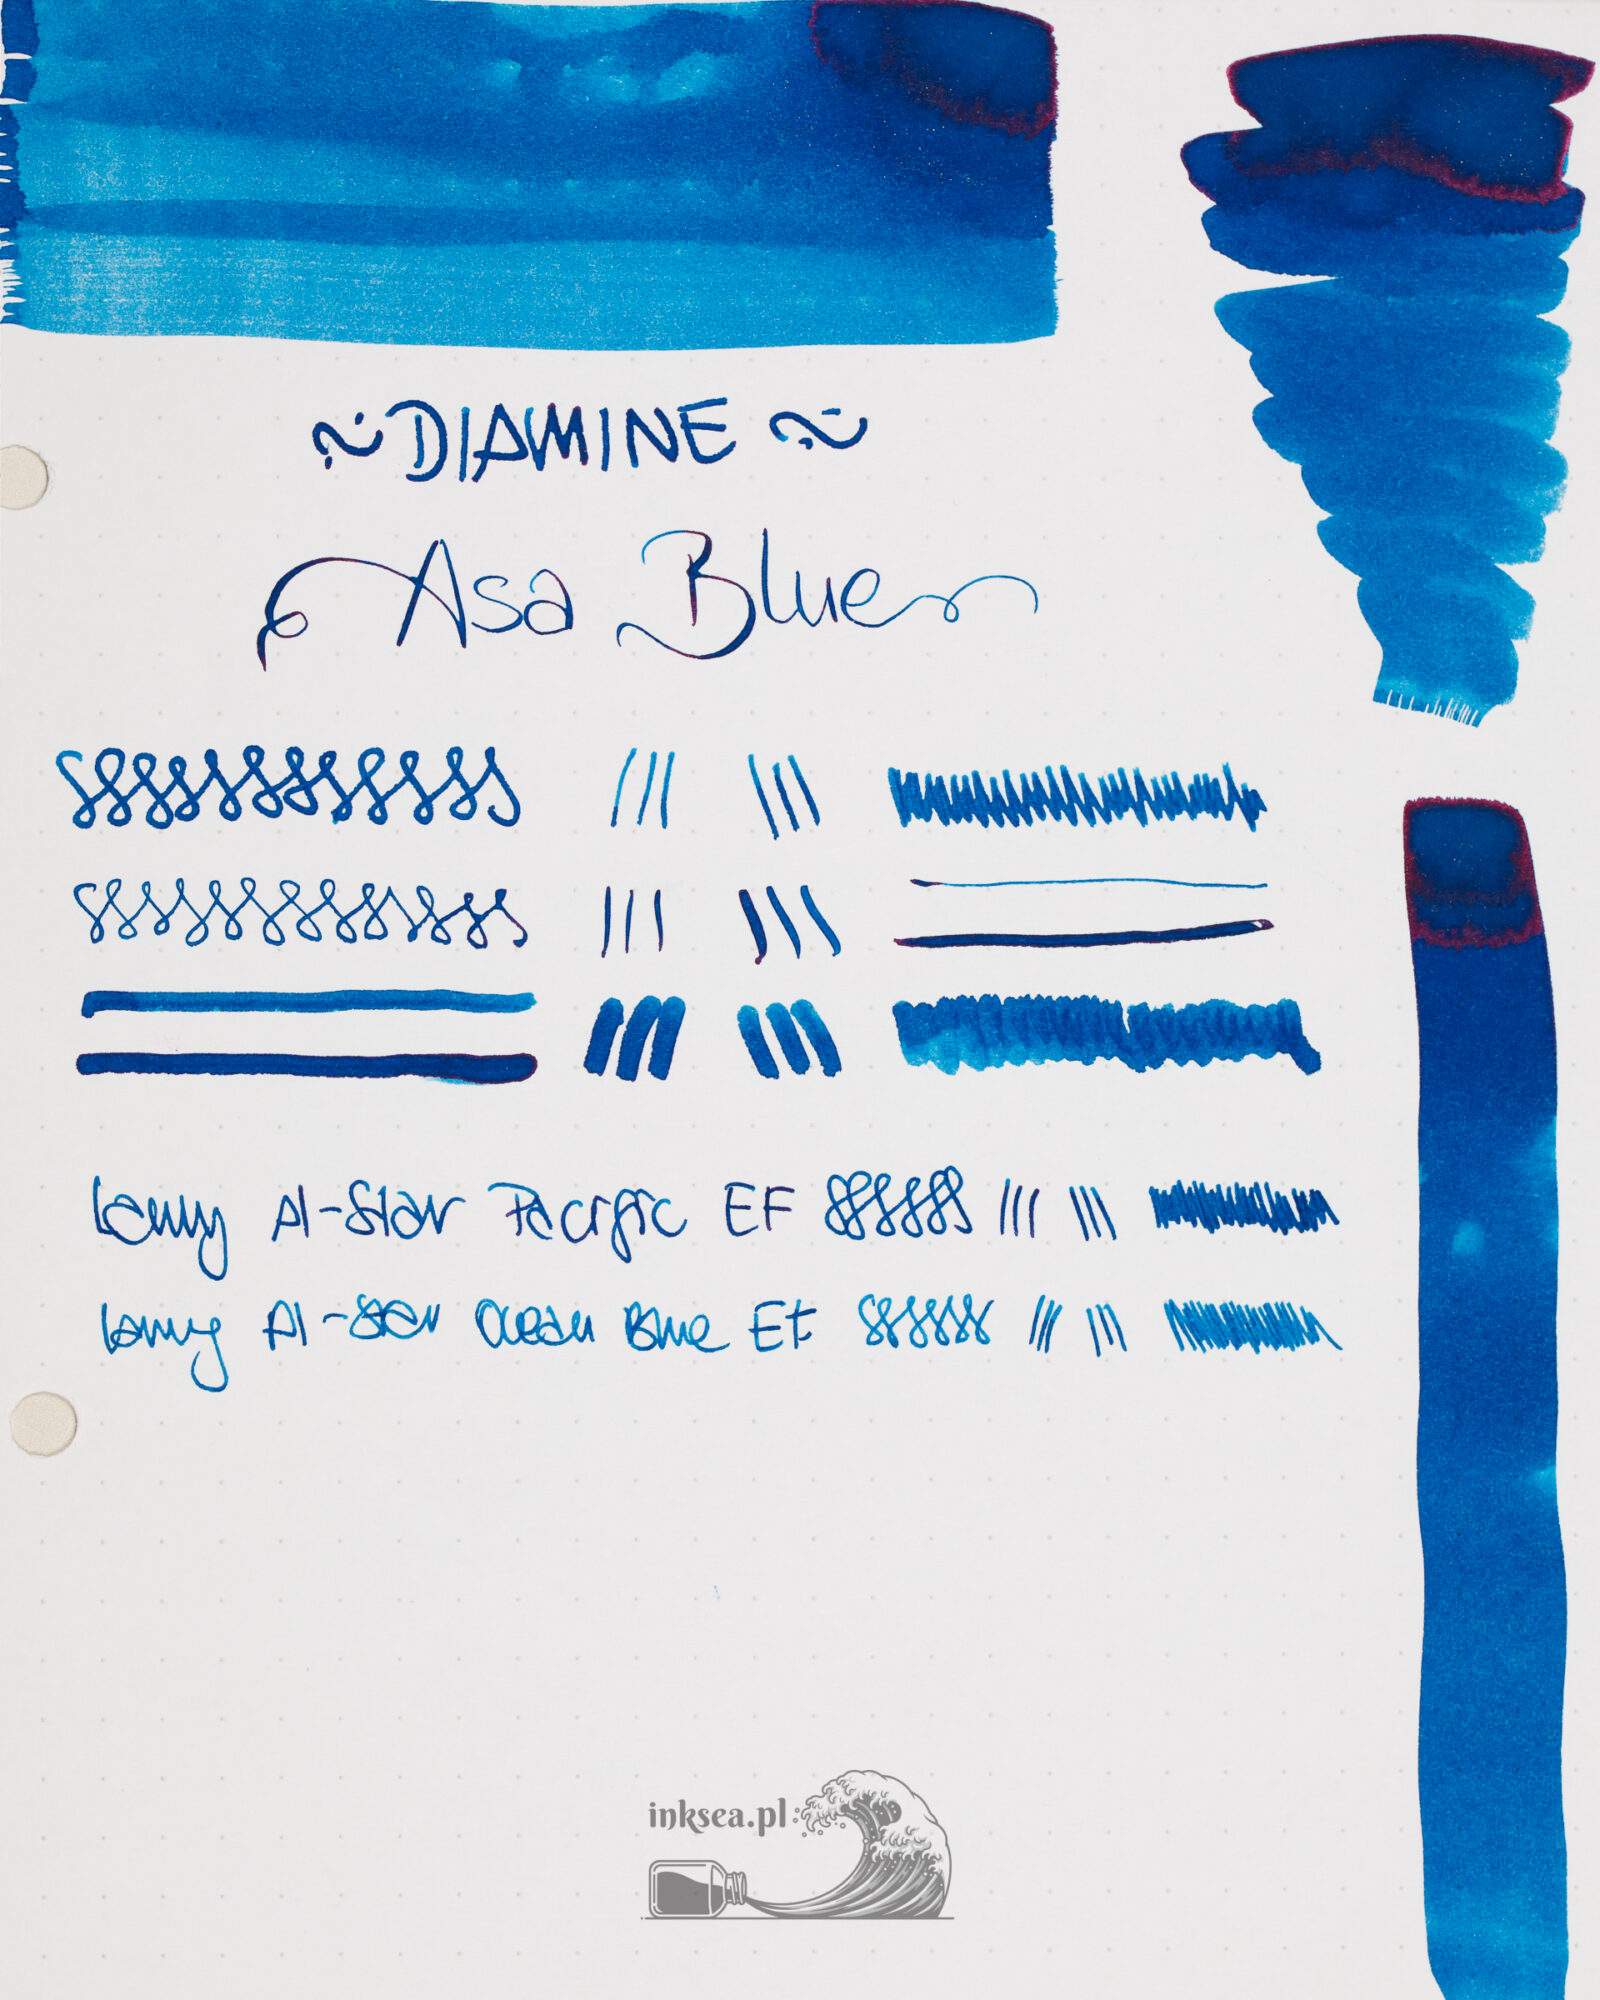 ~ DIAMINE ~
Asa Blue
Lamy Al-Star Pacific EF
Lamy Al-Star Ocean Blue EF
inksea.pl